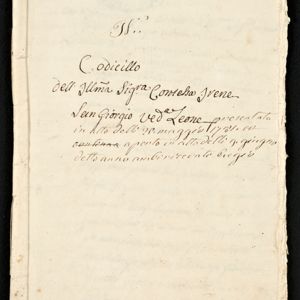 Codicillo
dell' Illma Sigra Contessa Irene
San Giorgio Veda Leone presentato
in atto delli 30 maggio
aperto in atto delli 9 giugno
detto anno